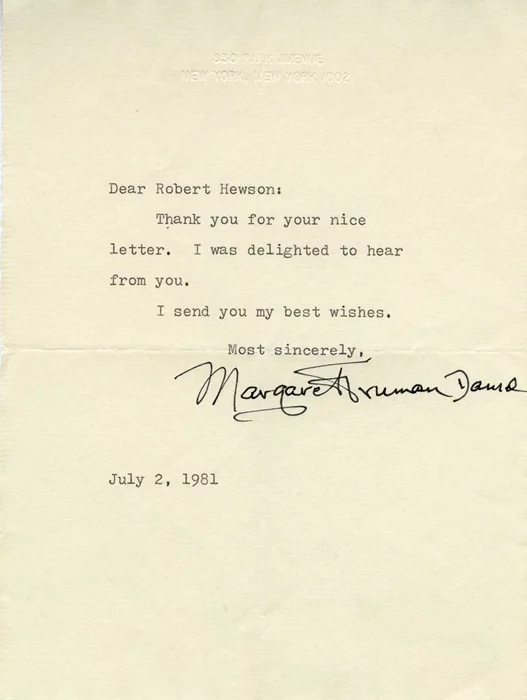 PARK AVENUE
NEW YORK, NEW YORK
Dear Robert Hewson:
Thank you for your nice
letter. I was delighted to hear
from you.
I send you my best wishes.
Most sincerely,
Margaret Truman Daniel
July 2, 1981